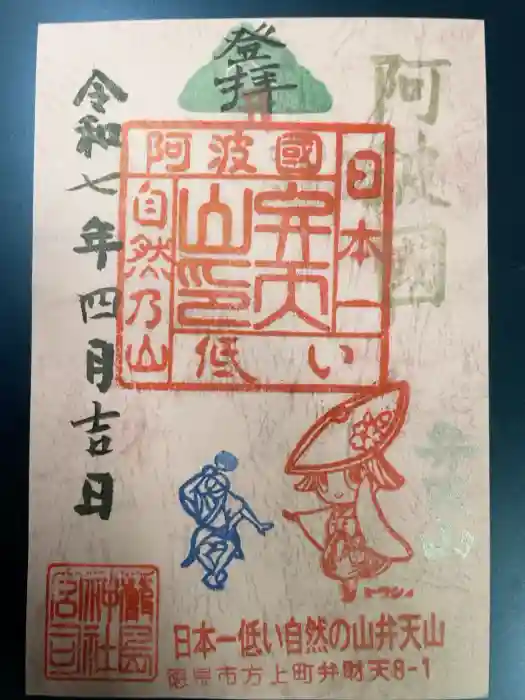 登拝
阿波國
弁天山
日本一
阿波國
自然乃山
弁天
山印
低い
令和七年四月吉日
日本一低い自然の山弁天山
徳島市方上町弁財天8-1